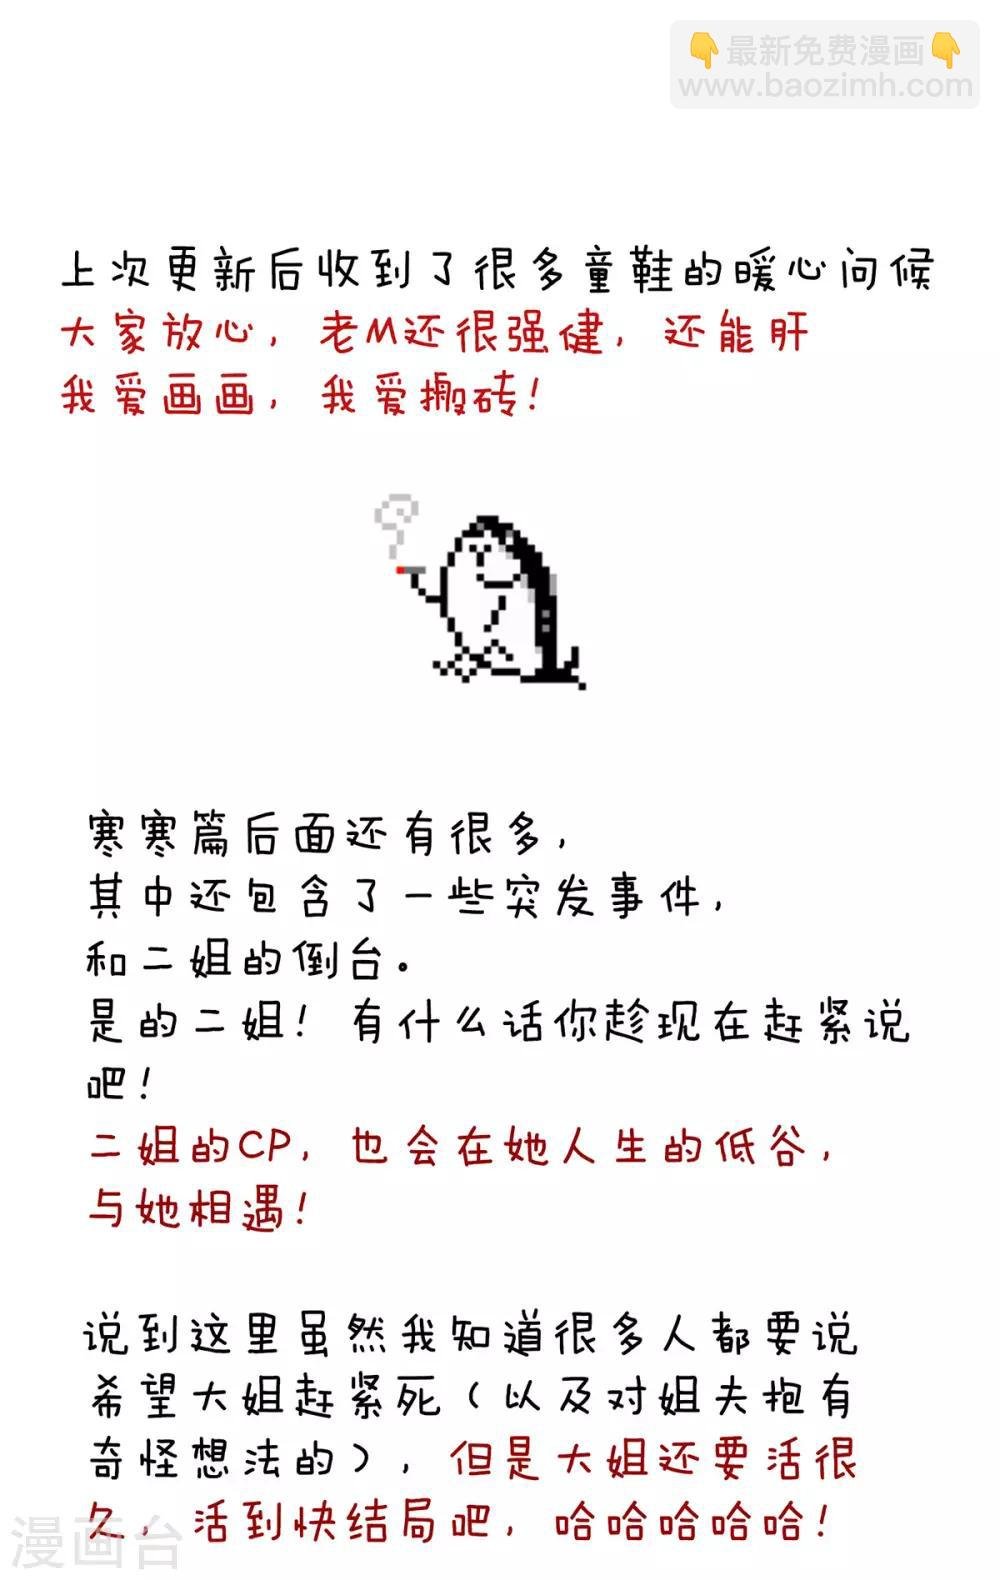 👇最新免费漫画👇
www.baozimh.com
上次更新后收到了很多童鞋的暖心问候
大家放心，老M还很强健，还能肝
我爱画画，我爱搬砖！
寒寒篇后面还有很多，
其中还包含了一些突发事件，
和二姐的倒台。
是的二姐！有什么话你趁现在赶紧说
吧！
二姐的CP，也会在她人生的低谷，
与她相遇！
说到这里虽然我知道很多人都要说
希望大姐赶紧死（以及对姐夫抱有
奇怪想法的），但是大姐还要活很
久，活到快结局吧，哈哈哈哈哈！
漫画台